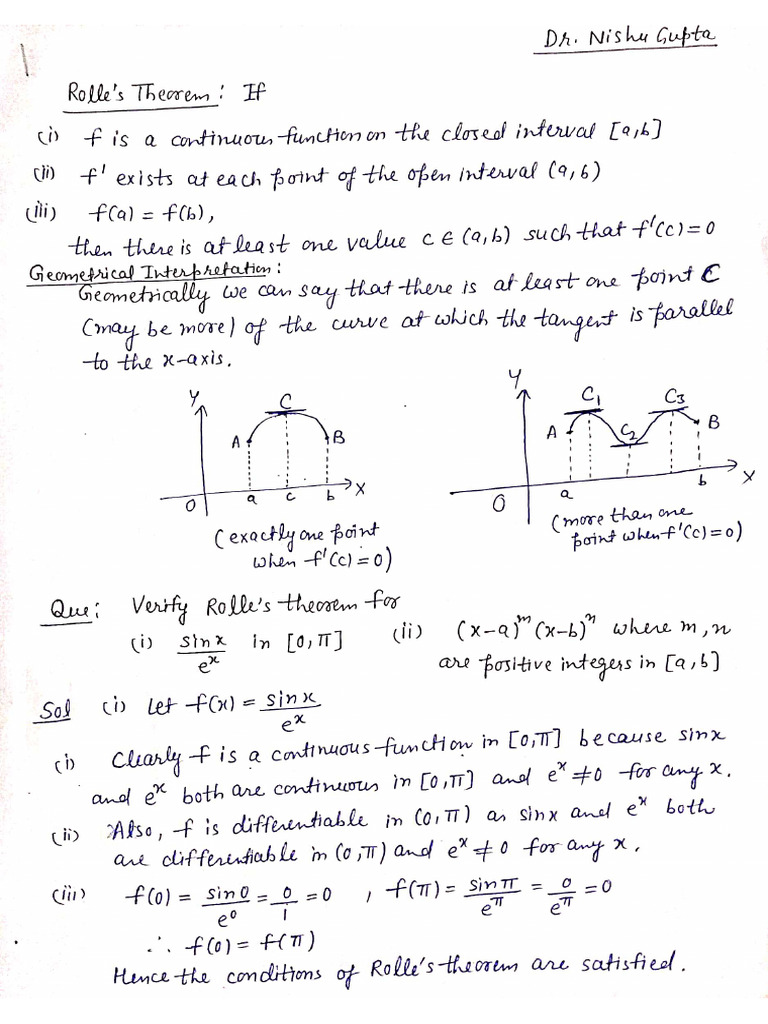 Dr. Nishu Gupta
Rolle's Theorem: If
(i) f is a continuous function on the closed interval [a,b]
(ii) f' exists at each point of the open interval (a,b)
(iii) f(a) = f(b),
then there is at least one value c ∈ (a,b) such that f'(c) = 0
Geometrical Interpretation:
Geometrically we can say that there is at least one point C
(may be more) of the curve at which the tangent is parallel
to the x-axis.
Y C A B O a c b X
(exactly one point
when f'(c) = 0)
Y C1 C2 C3 A B O a b X
(more than one
point when f'(c) = 0)
Que: Verify Rolle's theorem for
(i) sinx/e^x in [0,π] (ii) (x-a)^m (x-b)^n where m, n
are positive integers in [a,b]
Sol (i) Let f(x) = sinx/e^x
(i) Clearly f is a continuous function in [0,π] because sinx
and e^x both are continuous in [0,π] and e^x ≠ 0 for any x.
(ii) Also, f is differentiable in (0,π) as sinx and e^x both
are differentiable in (0,π) and e^x ≠ 0 for any x.
(iii) f(0) = sin0/e^0 = 0/1 = 0 , f(π) = sinπ/e^π = 0/e^π = 0
∴ f(0) = f(π)
Hence the conditions of Rolle's theorem are satisfied.